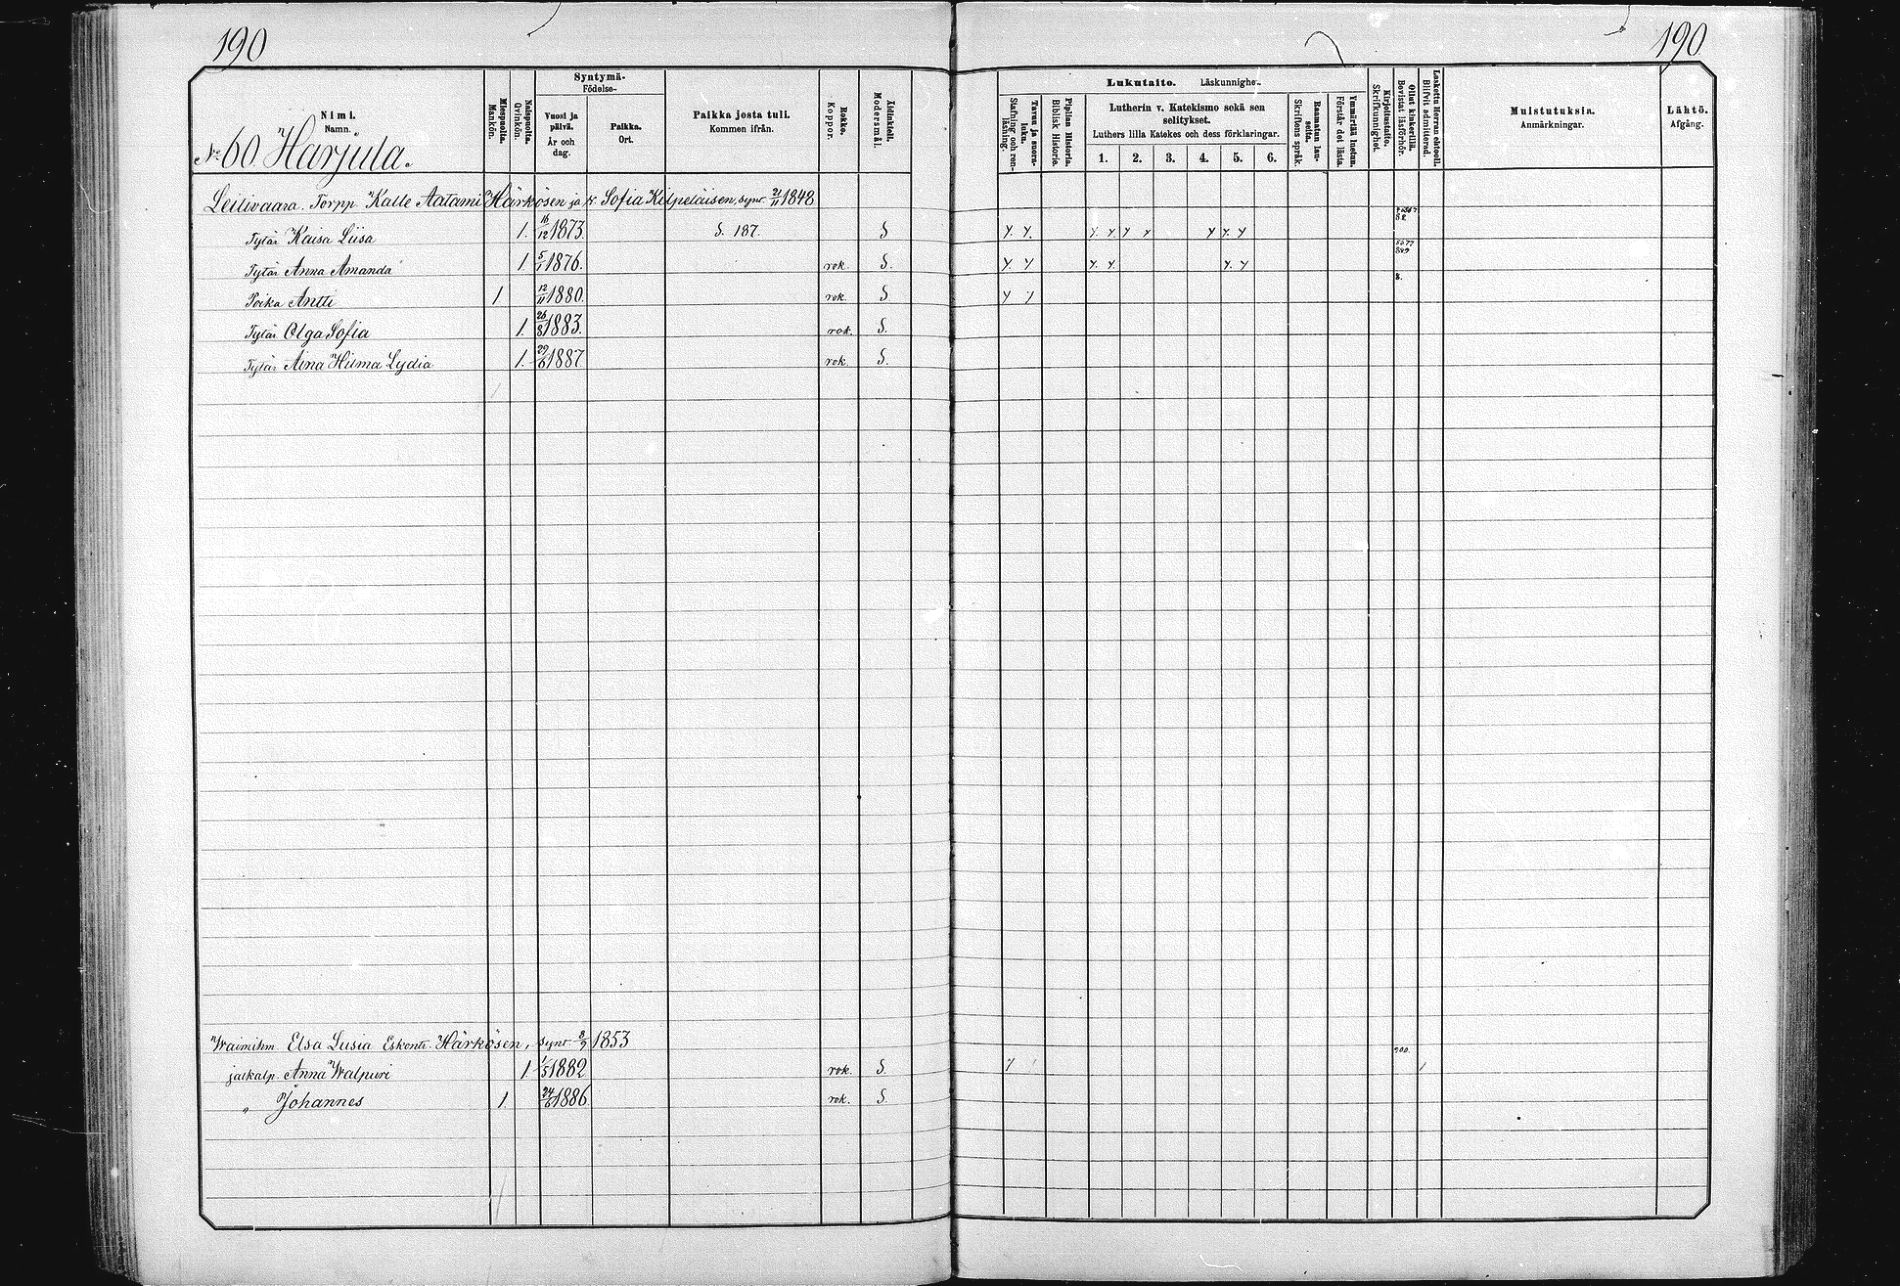 190
190
Nimi.
Namn.
Miespuolia.
Mankön.
Naispuolia.
Qvinkön.
Syntymä-
Födelse-
Vuosi ja päivä.
År och dag.
Paikka.
Ort.
Paikka josta tuli.
Kommen ifrån.
Rokko.
Koppor.
Äitinkieli.
Modersmål.
Lukutaito. Läskunnighet.
Stafning och ren-läsning.
Tavuu ja suora-luku.
Piplian Historia.
Biblisk Historia.
Lutherin v. Katekismo sekä sen selitykset.
Luthers lilla Katekes och dess förklaringar.
1. 2. 3. 4. 5. 6.
Raamatun lau-seita.
Skriftens språk.
Ymmärtää luetun.
Förstår det lästa.
Kirjoitustaito.
Skrifkunnighet.
Ollut kinkerillä.
Bevistat läsförhör.
Laskettu Herran ehtooll.
Blifvit admitterad.
Muistutuksia.
Anmärkningar.
Lähtö.
Afgång.
No 60 Harjula.
Leilivaara. Torpp. Kalle Aatami Härkösen ja v. Sofia Kilpeläisen, synt. 21/11 1848
Tytär Kaisa Liisa 1. 16/12 1873. S. 187. S
Tytär Anna Amanda 1 5/1 1876. rok. S.
Poika Antti 1 12/11 1880. rok. S
Tytär Olga Sofia 1. 26/8 1883. rok. S.
Tytär Aina Hilma Lydia 1. 29/6 1887. rok. S.
Waimoihm. Elsa Lusia Eskont. Härkösen, synt 8/9 1853
900.
jalkalp. Anna Walpuri 1 1/5 1882 rok. S.
" Johannes 1. 24/6 1886. rok. S.